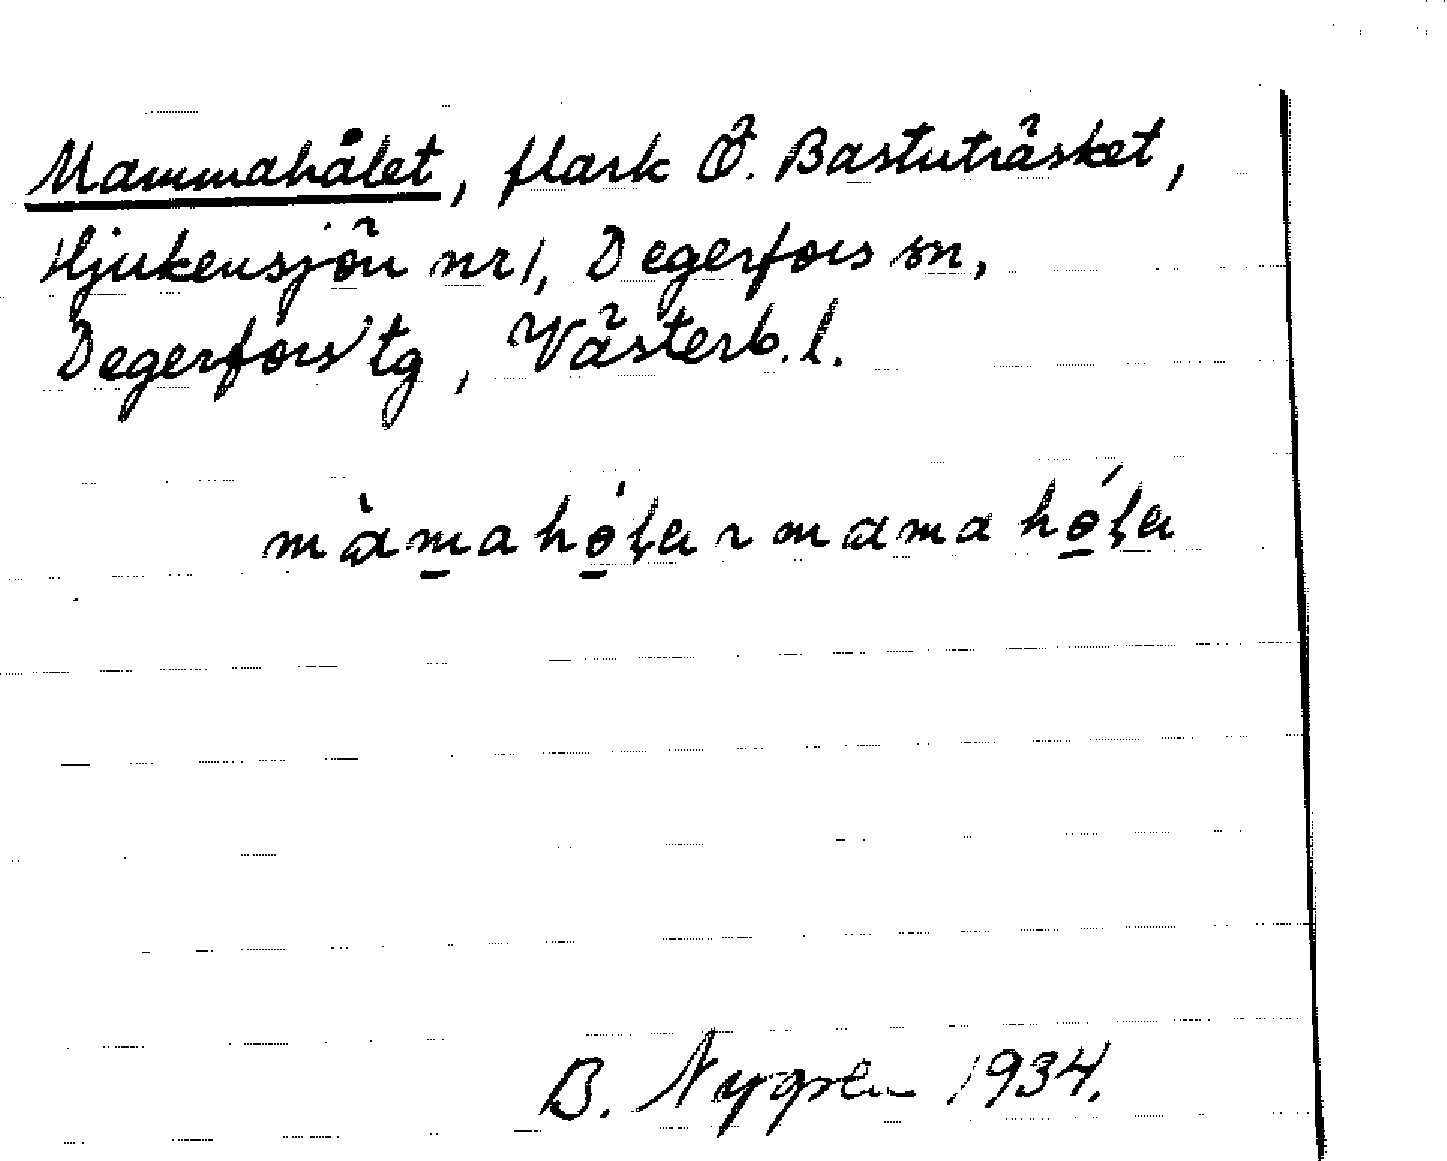 Mammahålet, flark Ö. Bastuträsket,
Hjukensjön nr 1, Degerfors sn,
Degerfors tg, Västerb. l.
màmahó̱ļa ɿ mama hó̱ļa
B. Nygren 1934.